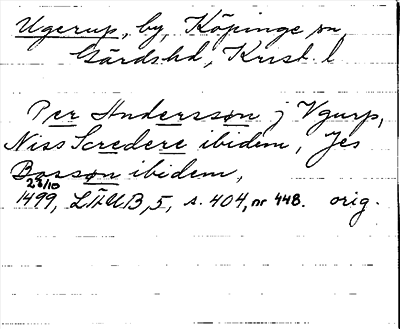 Ugerup, by, Köpinge sn,
Gärds hd, Krist. l
Per Andersson j Vgurp,
Niss Scredere ibidem, Jes
Bosson ibidem,
23/10
1499, LÄUB, 5, s. 404, nr 448. orig.